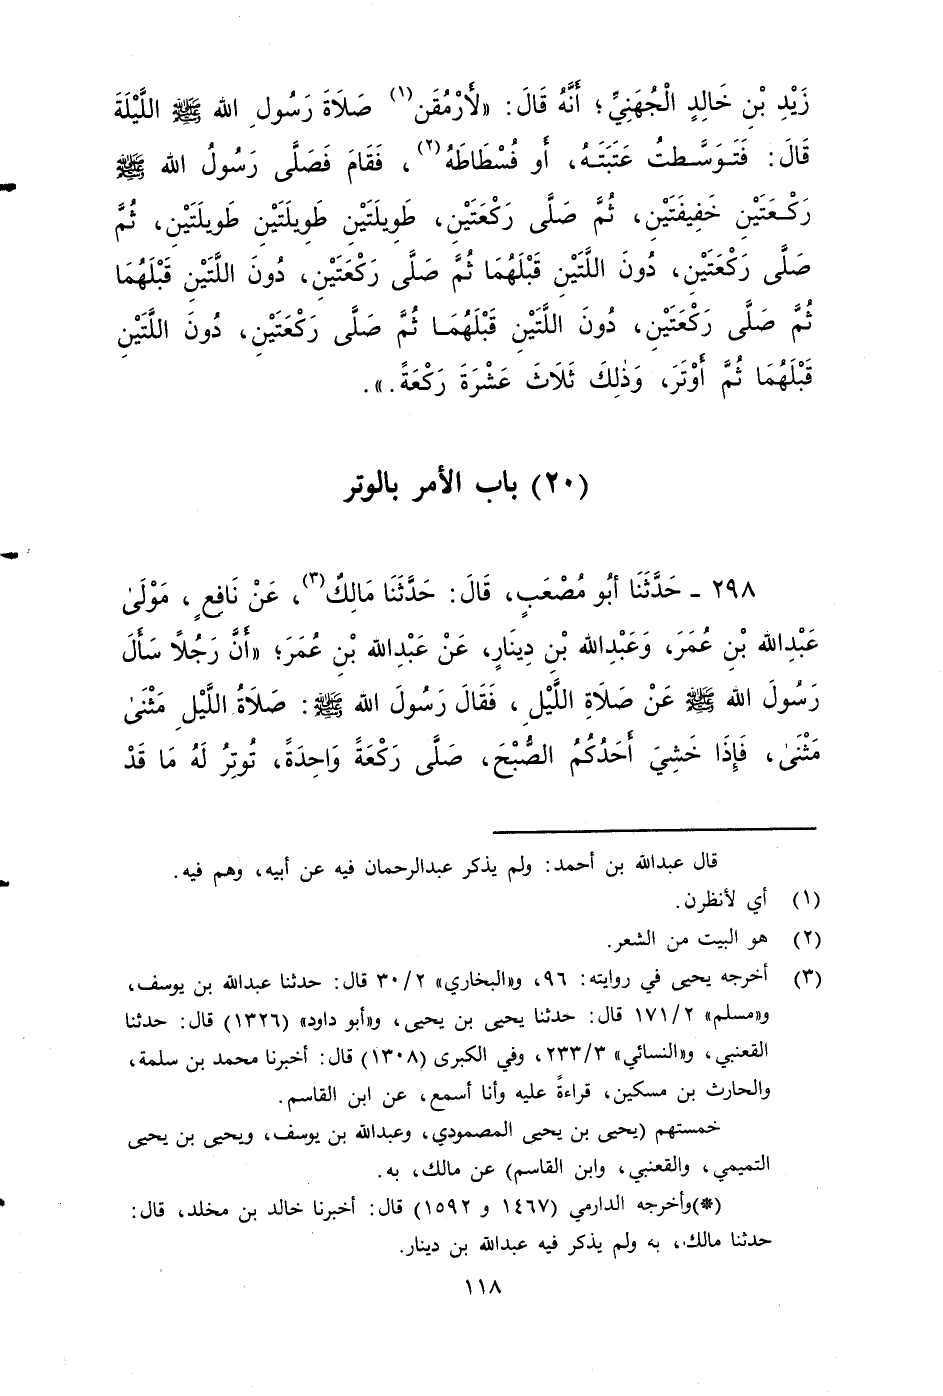 زَيْدِ بْنِ خَالِدٍ الْجُهَنِيِّ؛ أَنَّهُ قَالَ: «لَأَرْمُقَن(١) صَلَاةَ رَسُولِ الله ﷺ اللَّيْلَةَ
قَالَ: فَتَوَسَّطتُ عَتَبَتَهُ، أَو فُسْطَاطَهُ(٢)، فَقَامَ فَصَلَّى رَسُولُ الله ﷺ
رَكْعَتَيْنِ خَفِيفَتَيْنِ، ثُمَّ صَلَّى رَكْعَتَيْنِ، طَوِيلَتَيْنِ طَوِيلَتَيْنِ طَوِيلَتَيْنِ، ثُمَّ
صَلَّى رَكْعَتَيْنِ، دُونَ اللَّتَيْنِ قَبْلَهُمَا ثُمَّ صَلَّى رَكْعَتَيْنِ، دُونَ اللَّتَيْنِ قَبْلَهُمَا
ثُمَّ صَلَّى رَكْعَتَيْنِ، دُونَ اللَّتَيْنِ قَبْلَهُمَا ثُمَّ صَلَّى رَكْعَتَيْنِ، دُونَ اللَّتَيْنِ
قَبْلَهُمَا ثُمَّ أَوْتَرَ، وَذٰلِكَ ثَلَاثَ عَشْرَةَ رَكْعَةً.».
(٢٠) باب الأمر بالوتر
٢٩٨ ـ حَدَّثَنَا أبُو مُصْعَبٍ، قَالَ: حَدَّثَنَا مَالِكٌ(٣)، عَنْ نَافِعٍ، مَوْلَىٰ
عَبْدِالله بْنِ عُمَرَ، وَعَبْدِالله بْنِ دِينَارٍ، عَنْ عَبْدِالله بْنِ عُمَرَ؛ «أَنَّ رَجُلاً سَأَلَ
رَسُولَ الله ﷺ عَنْ صَلَاةِ اللَّيْلِ، فَقَالَ رَسُولَ الله ﷺ: صَلَاةُ اللَّيْلِ مَثْنَىٰ
مَثْنَىٰ، فَإِذَا خَشِيَ أَحَدُكُمُ الصُّبْحَ، صَلَّى رَكْعَةً وَاحِدَةً، تُوتِرُ لَهُ مَا قَدْ
قال عبدالله بن أحمد: ولم يذكر عبدالرحمان فيه عن أبيه، وهم فيه.
(١) أي لأنظرن.
(٢) هو البيت من الشعر.
(٣) أخرجه يحيى في روايته: ٩٦، و«البخاري» ٣٠/٢ قال: حدثنا عبدالله بن يوسف،
و«مسلم» ١٧١/٢ قال: حدثنا يحيى بن يحيى، و«أبو داود» (١٣٢٦) قال: حدثنا
القعنبي، و«النسائي» ٢٣٣/٣، وفي الكبرى (١٣٠٨) قال: أخبرنا محمد بن سلمة،
والحارث بن مسكين، قراءةً عليه وأنا أسمع، عن ابن القاسم.
خمستهم (يحيى بن يحيى المصمودي، وعبدالله بن يوسف، ويحيى بن يحيى
التميمي، والقعنبي، وابن القاسم) عن مالك، به.
(*)وأخرجه الدارمي (١٤٦٧ و ١٥٩٢) قال: أخبرنا خالد بن مخلد، قال:
حدثنا مالك، به ولم يذكر فيه عبدالله بن دينار.
١١٨